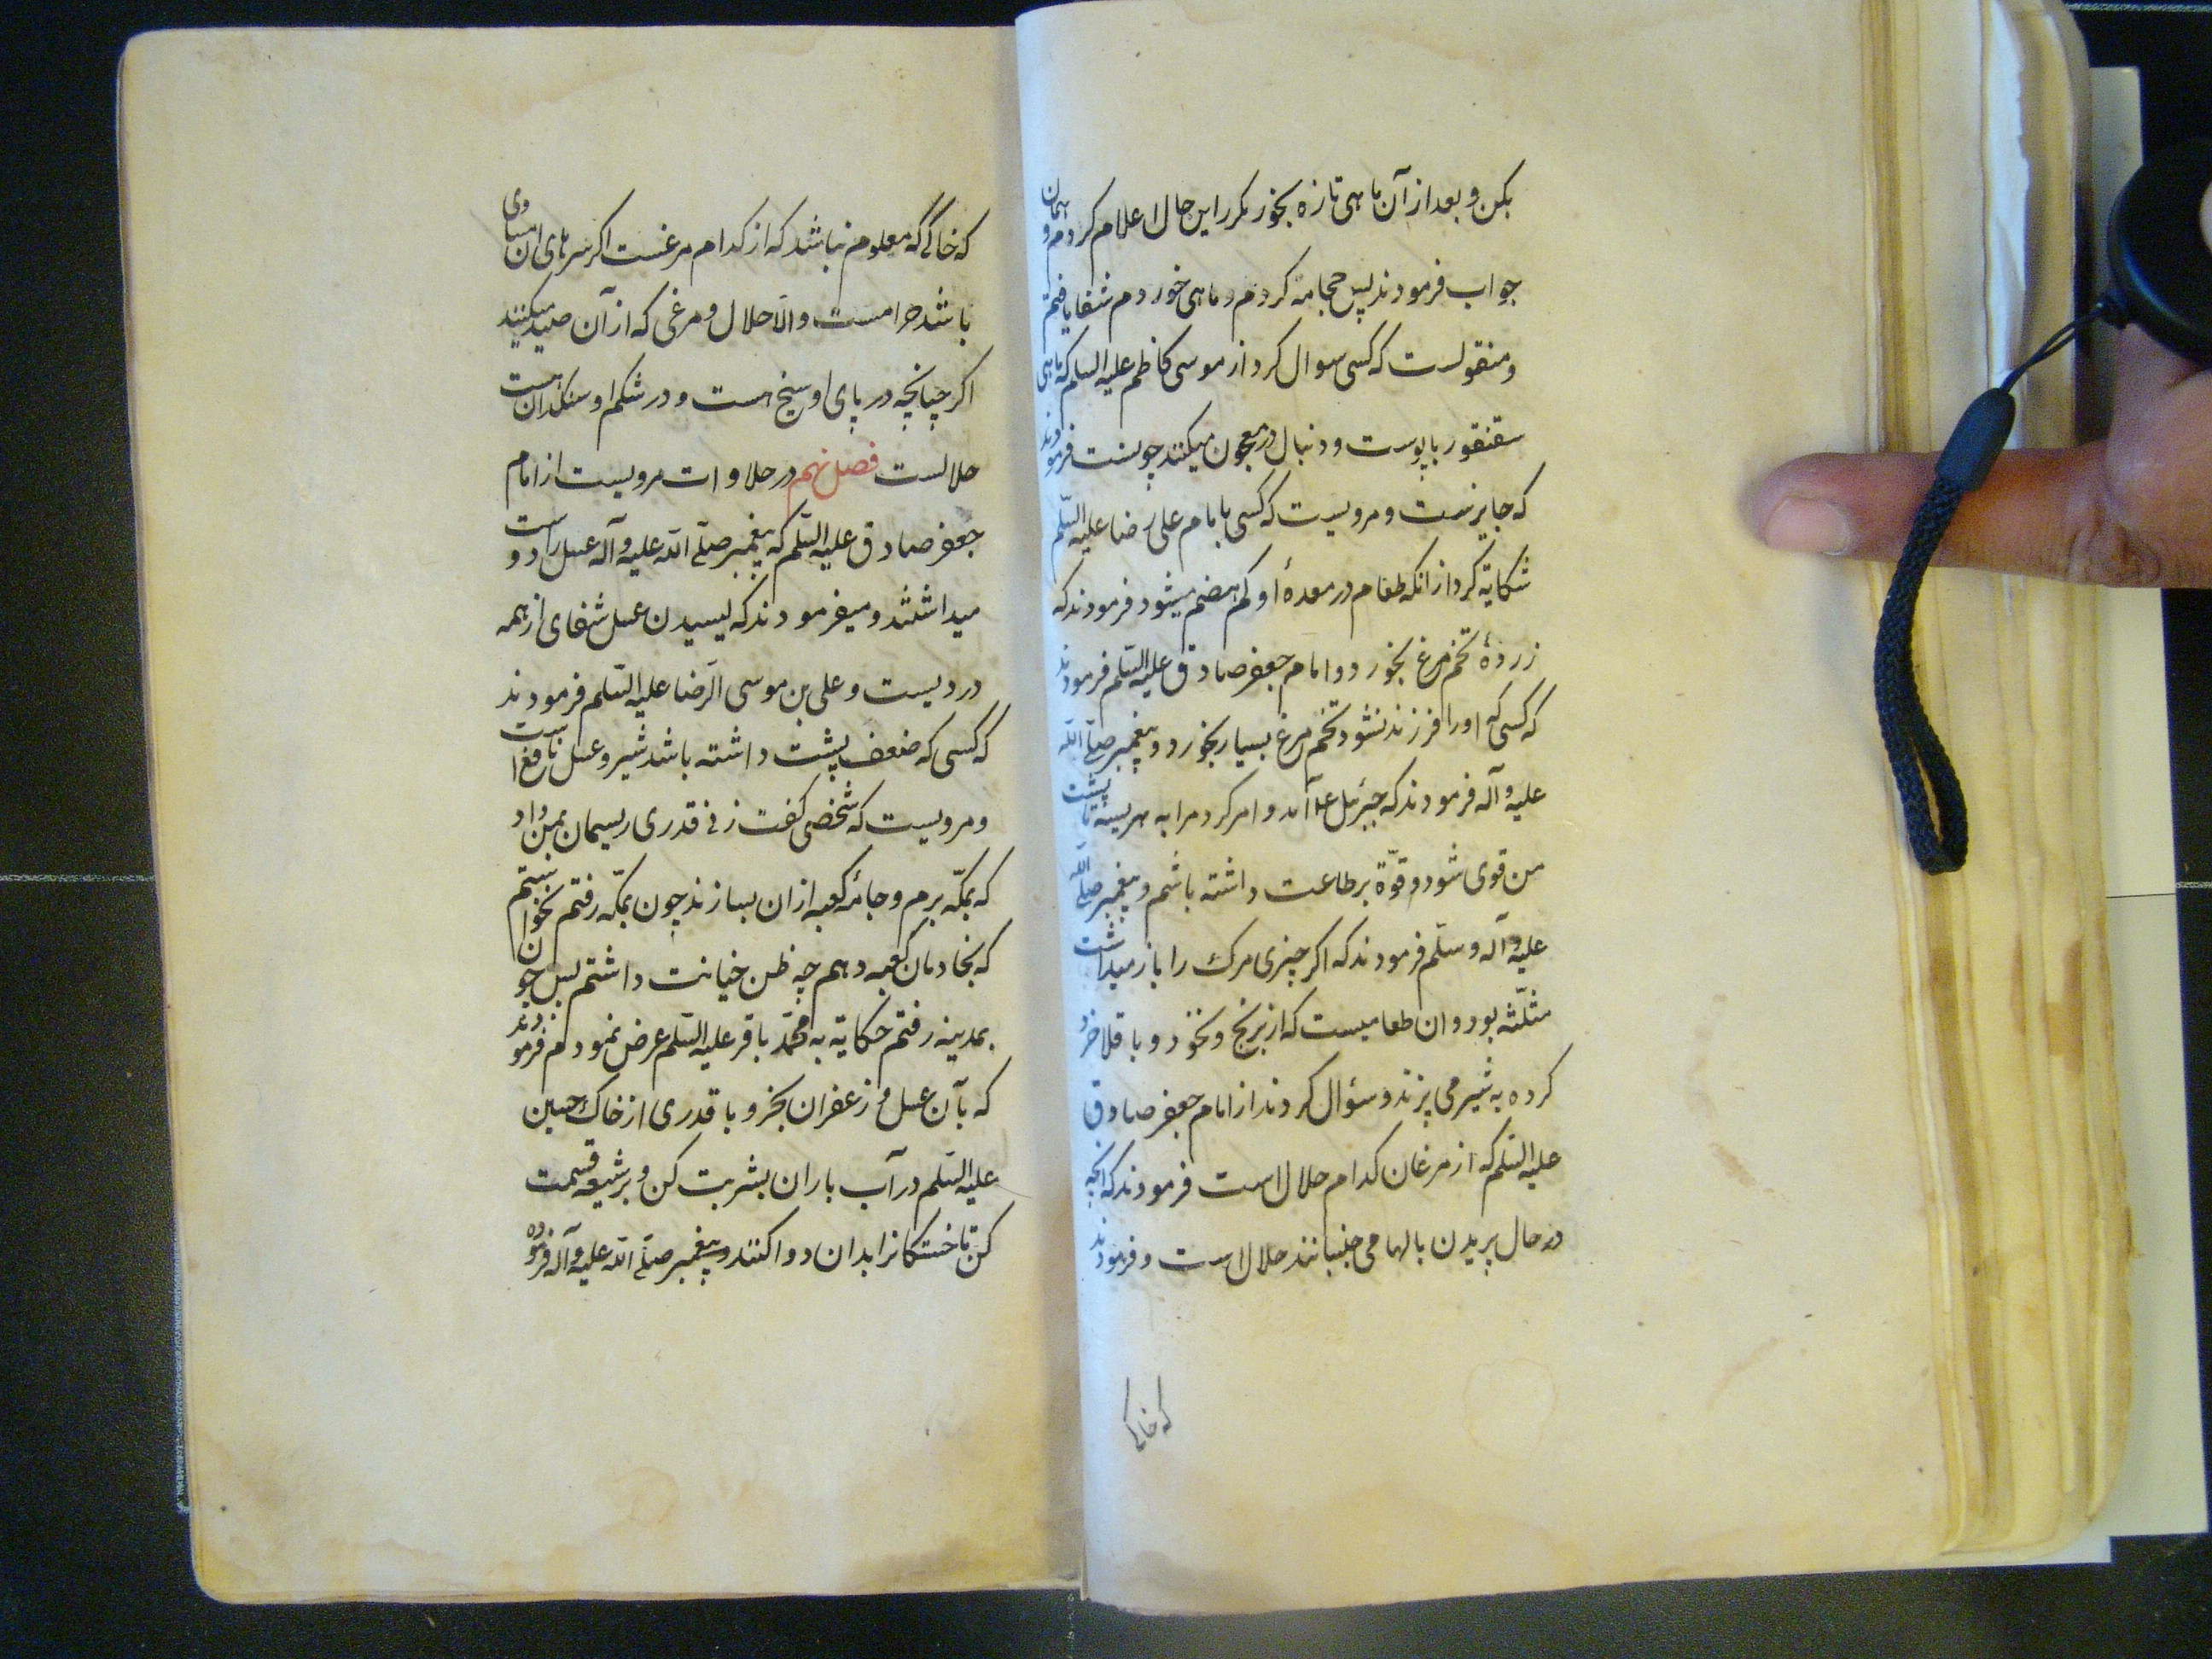 بکن و بعد از آن ماهی تازه بخور مکرر این حال اعلام کردم و همان
جواب فرمودند پس حجامة کردم و ماهی خوردم شفا یافتم
و منقولست که کسی سوال کرد از موسی کاظم علیه السلم که ماهی
سقنقور با پوست و دنبال در معجون میکنند چونست فرمودند
که جایزست و مرویست که کسی بامام علی رضا علیه السّلم
شکایة کرد از انکه طعام در معدهٔ او کم هضم میشود فرمودند که
زردهٔ تخم مرغ بخورد و امام جعفر صادق علیه السّلم فرمودند
که کسی که اورا فرزند نشود تخم مرغ بسیار بخورد و پیغمبر صلّی الله
علیه و آله فرمودند که جبرئیل ع آمد و امر کرد مرا به هریسه تا پشت
من قوی شود و قوّة بر طاعت داشته باشم و پیغمبر صلّی الله
علیه و آله و سلّم فرمودند که اکر چیزی مرک را باز میداشت
مثلّثه بود و ان طعامیست که از برنج و نخود و باقلا خرد
کرده به شیر می پزند و سؤال کردند از امام جعفر صادق
علیه السّلم که از مرغان کدام حلال است فرمودند که انچه
در حال پریدن بالها می جنبانند حلال است و فرمودند
که خاکی
که خاکی که معلوم نباشد که از کدام مرغست اکر سرهای ان مساوی
باشد حرامست و الّا حلال و مرغی که از آن صید میکنند
اکر چنانچه در پای او سیخ هست و در شکم او سنکدان هست
حلالست فصل نهم در حلاوات مرویست از امام
جعفر صادق علیه السّلم که پیغمبر صلّی الله علیه و آله عسل را دوست
میداشتند و میفرمودند که لیسیدن عسل شفای از همه
دردیست و علی بن موسی الرّضا علیه السّلم فرمودند
که کسی که ضعف پشت داشته باشد شیر و عسل نافع است
و مرویست که شخصی کفت زنی قدری ریسمان بمن داد
که بمکّه برم و جامهٔ کعبه ازان بسازند چون بمکّه رفتم نخواستم
که بخادمان کعبه دهم چه ظن خیانت داشتم پس چون
بمدینه رفتم حکایة به محمّد باقر علیه السّلم عرض نمودم فرمودند
که بآن عسل و زعفران بخر و با قدری از خاک حسین
علیه السّلم در آب باران بشربت کن و بر شیعه قسمت
کن تا خستکانرا بدان دوا کنند و پیغمبر صلّی الله علیه و آله فرموده